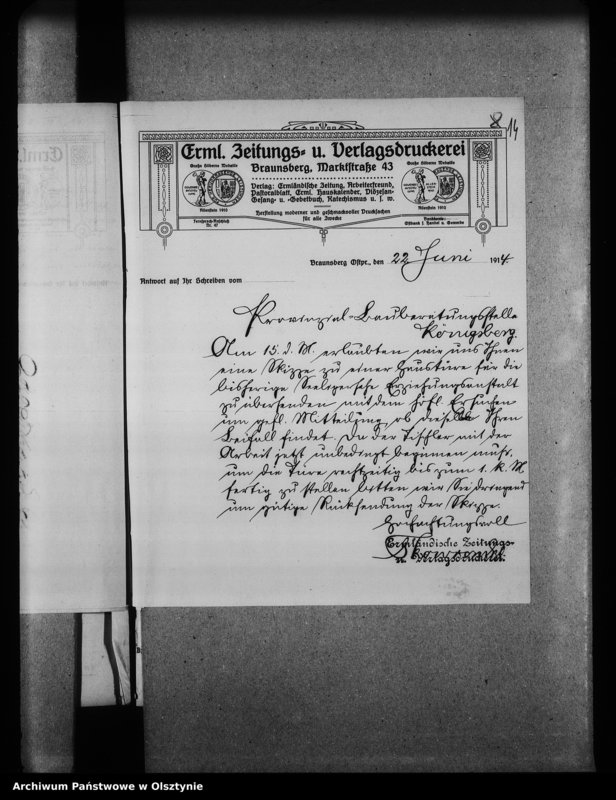 8 14
Erml. Zeitungs- u. Verlagsdruckerei
Braunsberg, Marktstraße 43
Große Silberne Medaille
Allenstein 1910
Große Silberne Medaille
Allenstein 1910
Verlag: Ermländische Zeitung, Arbeiterfreund,
Pastoralblatt, Erml. Hauskalender, Diözesan-
Gesang- u. -Gebetbuch, Katechismus u. s. w.
Herstellung moderner und geschmackvoller Drucksachen
für alle Zwecke
Fernsprech-Anschluß
Nr. 47
Bankkonto:
Ostbank f. Handel u. Gewerbe
Braunsberg Ostpr., den 22 Juni 1914.
Antwort auf Ihr Schreiben vom
Provinzial-Bauberatungsstelle
Königsberg.
Am 15. d. M. erlaubten wir uns Ihnen
eine Skizze zu einer Haustüre für die
bisherige Erziehungsanstalt
zu übersenden mit dem höfl. Ersuchen
um gefl. Mitteilung, ob dieselbe Ihren
Beifall findet. Da der Tischler mit der
Arbeit jetzt unbedingt beginnen muß,
um die Türe rechtzeitig bis zum 1. k. M.
fertig zu stellen bitten wir Sie dringend
um gütige Rücksendung der Skizze.
Hochachtungsvoll
Ermländische Zeitungs-
u. Verlagsdruckerei.
Archiwum Państwowe w Olsztynie